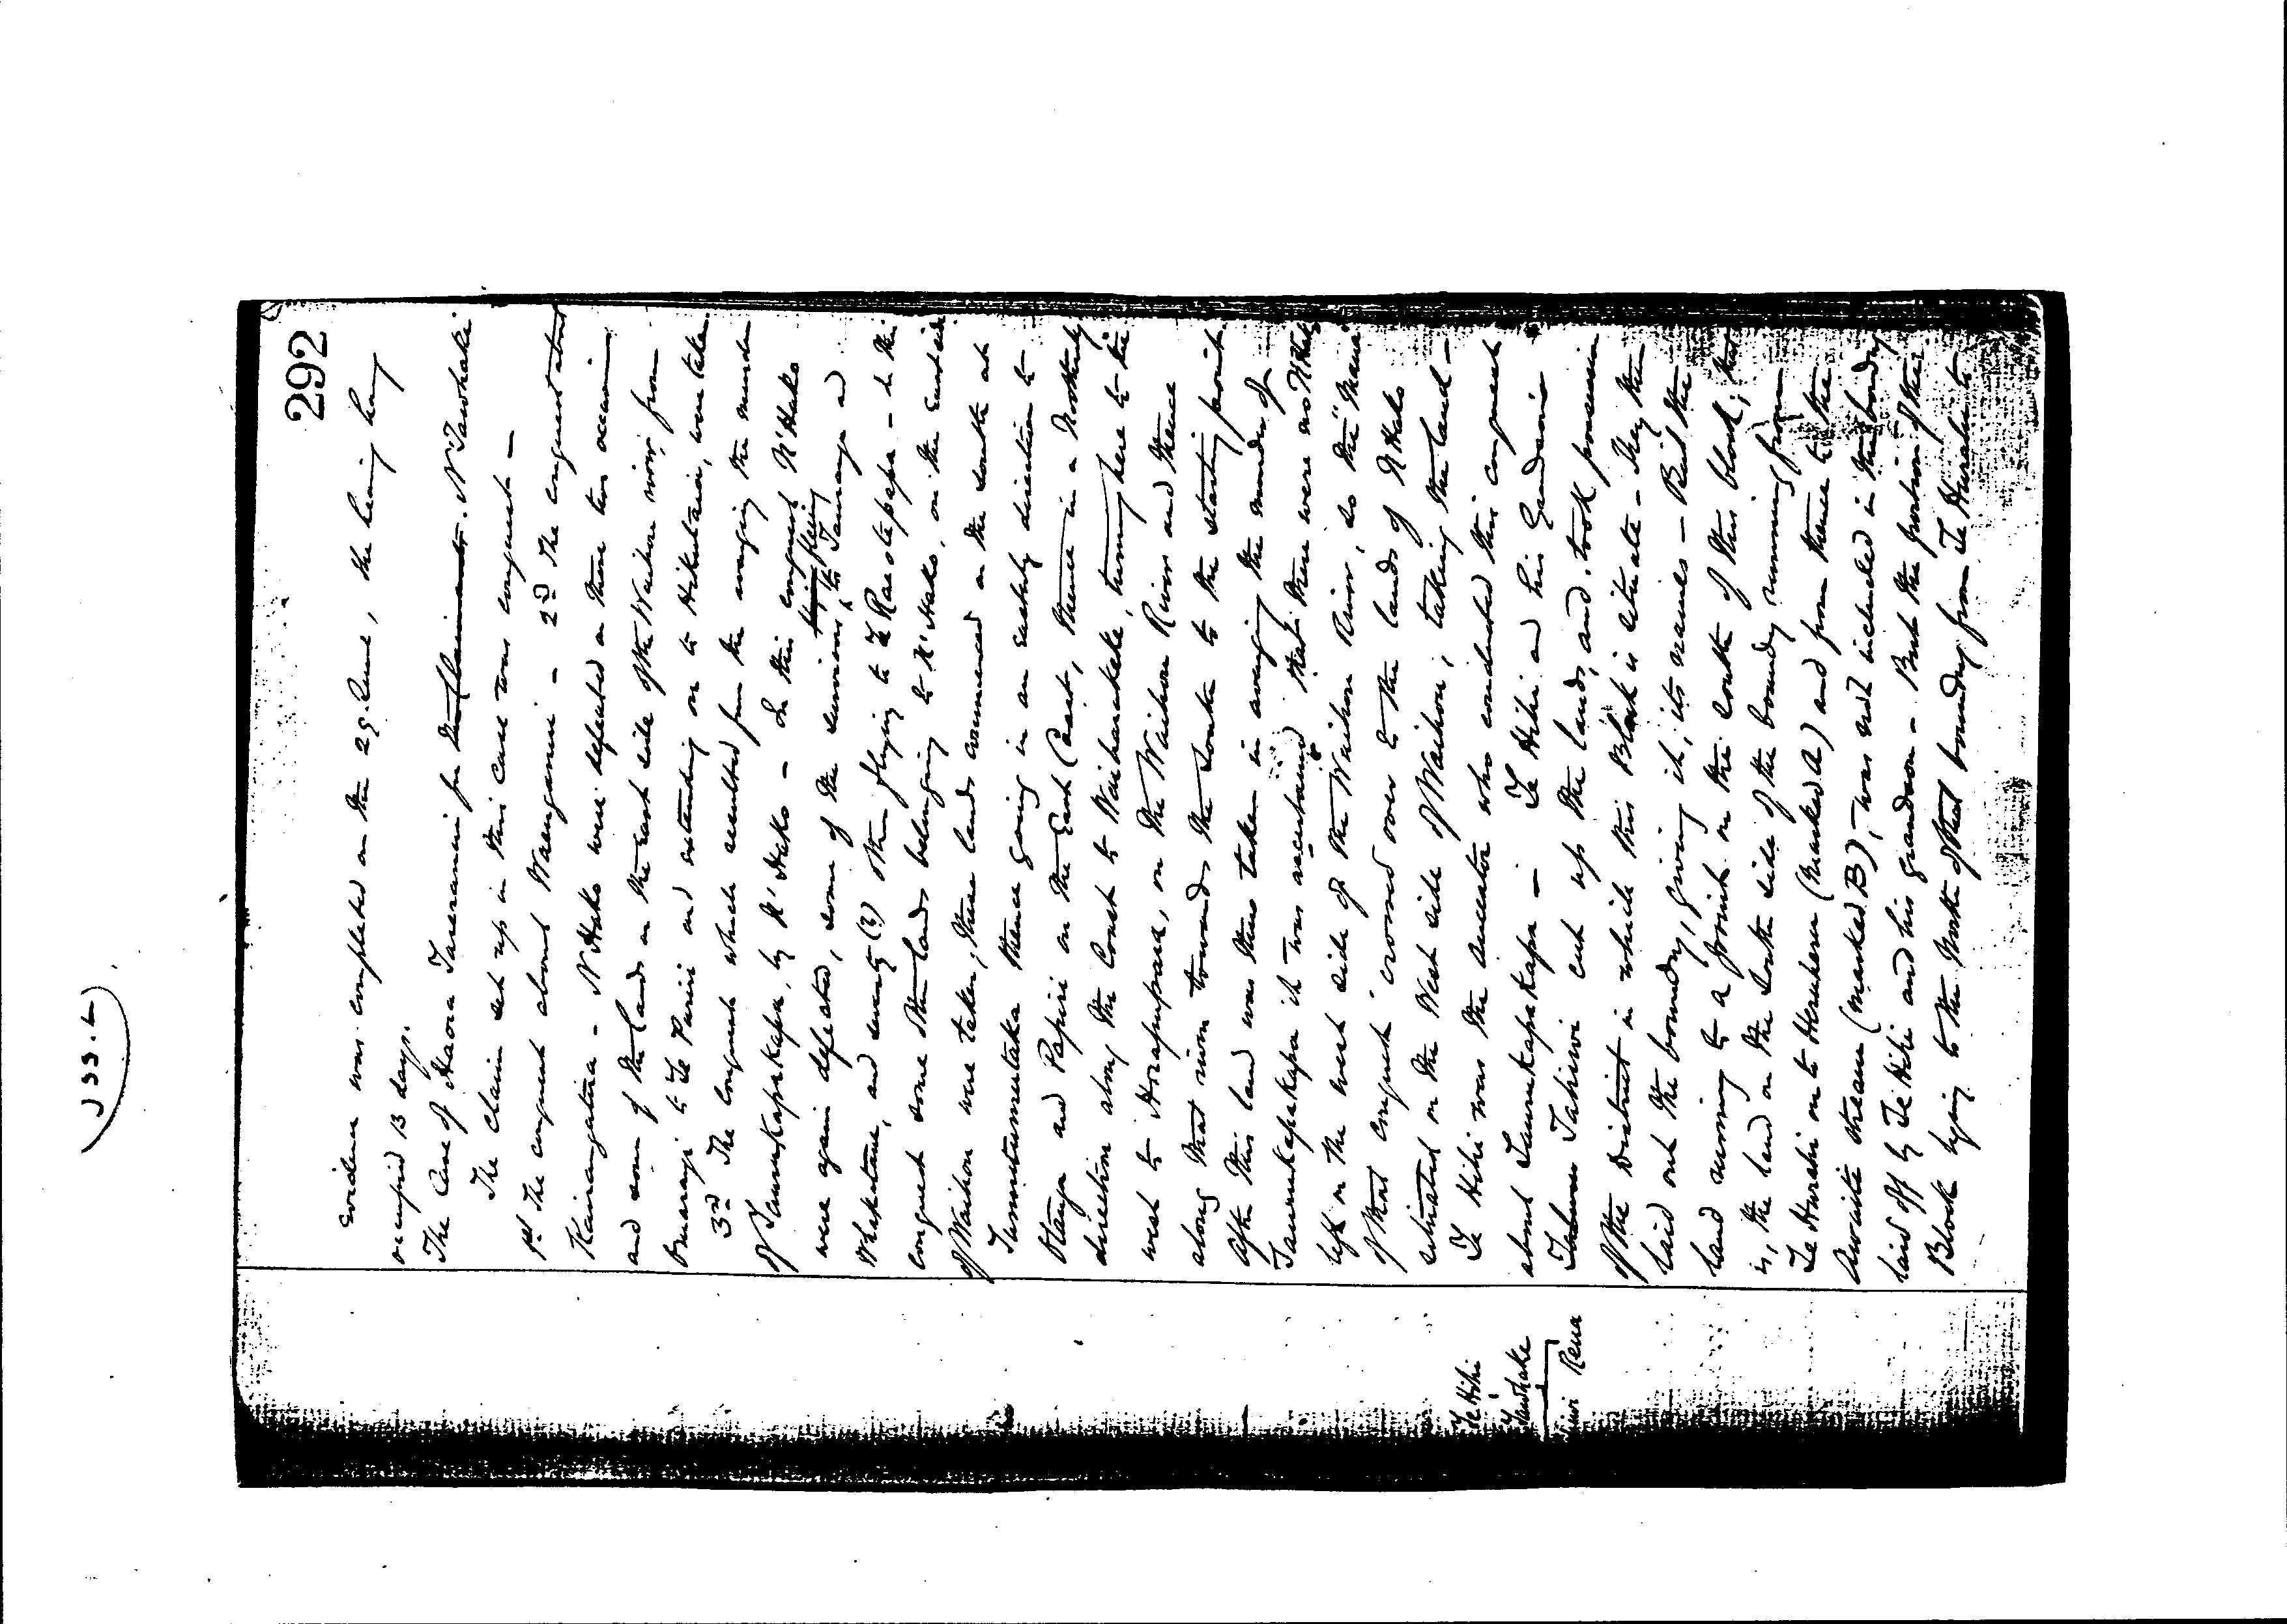 292
evidence was completed on the 29. June, the hearing having
occupied 13 days.
The Case of Haora Tareranui for the claimants. N'Tawhaki
The claim set up in this case was conquest —
1st The conquest about Waenganui — 2nd The conquest about
N'Hako were defeated on these two occasions
and some of the lands on the east side of the Waihou river, from
to Te Puriri and extending on to Hikutaia, were taken.
3rd The conquest which resulted from the avenging the murder
of Taurukapakapa, by N'Hako — In this conquest N'Hako
were again defeated, some of the survivors fleeing to Tauranga and
Whakatane, and seventy (?) others flying to Te Rae o te papa — In this
conquest some other lands belonging to N'Hako, on the East side
of Waihou were taken, these lands commenced on the South at
Tumutumutaka thence going in an easterly direction to
and Papiri on the East Coast, thence in a Northerly
direction along the Coast to Waiharakeke, turning here to the
west to Horapupara, on the Waihou River and thence
along that river towards the South to the starting point.
After this land was thus taken in avenging the murder of
Taurukapakapa it was ascertained that there were no N'Hako
left on the west side of the Waihou River, so the "Mana"
of that conquest crossed over to the lands of N'Hako
situated on the West side of Waihou, taking the land —
Te Hihi was the ancestor who conducted this conquest
about Taurukapakapa — Te Hihi and his Grandson
Tahiwi cut up the lands, and took possession
of the District in which this Block is situate — They then
laid out the boundary, giving it, its names — But the
land running to a point on the South of this block; that
is, the land on the South side of the boundary running from
Te Hurahi on to Heruheru (marked A) and from thence to the
Awaiti stream (marked B), was not included in the boundary
laid off by Te Hihi and his grandson — But the portion of the
Block lying to the North of that boundary from Te Hurahi to
Te Hihi
Tawhake
Rena